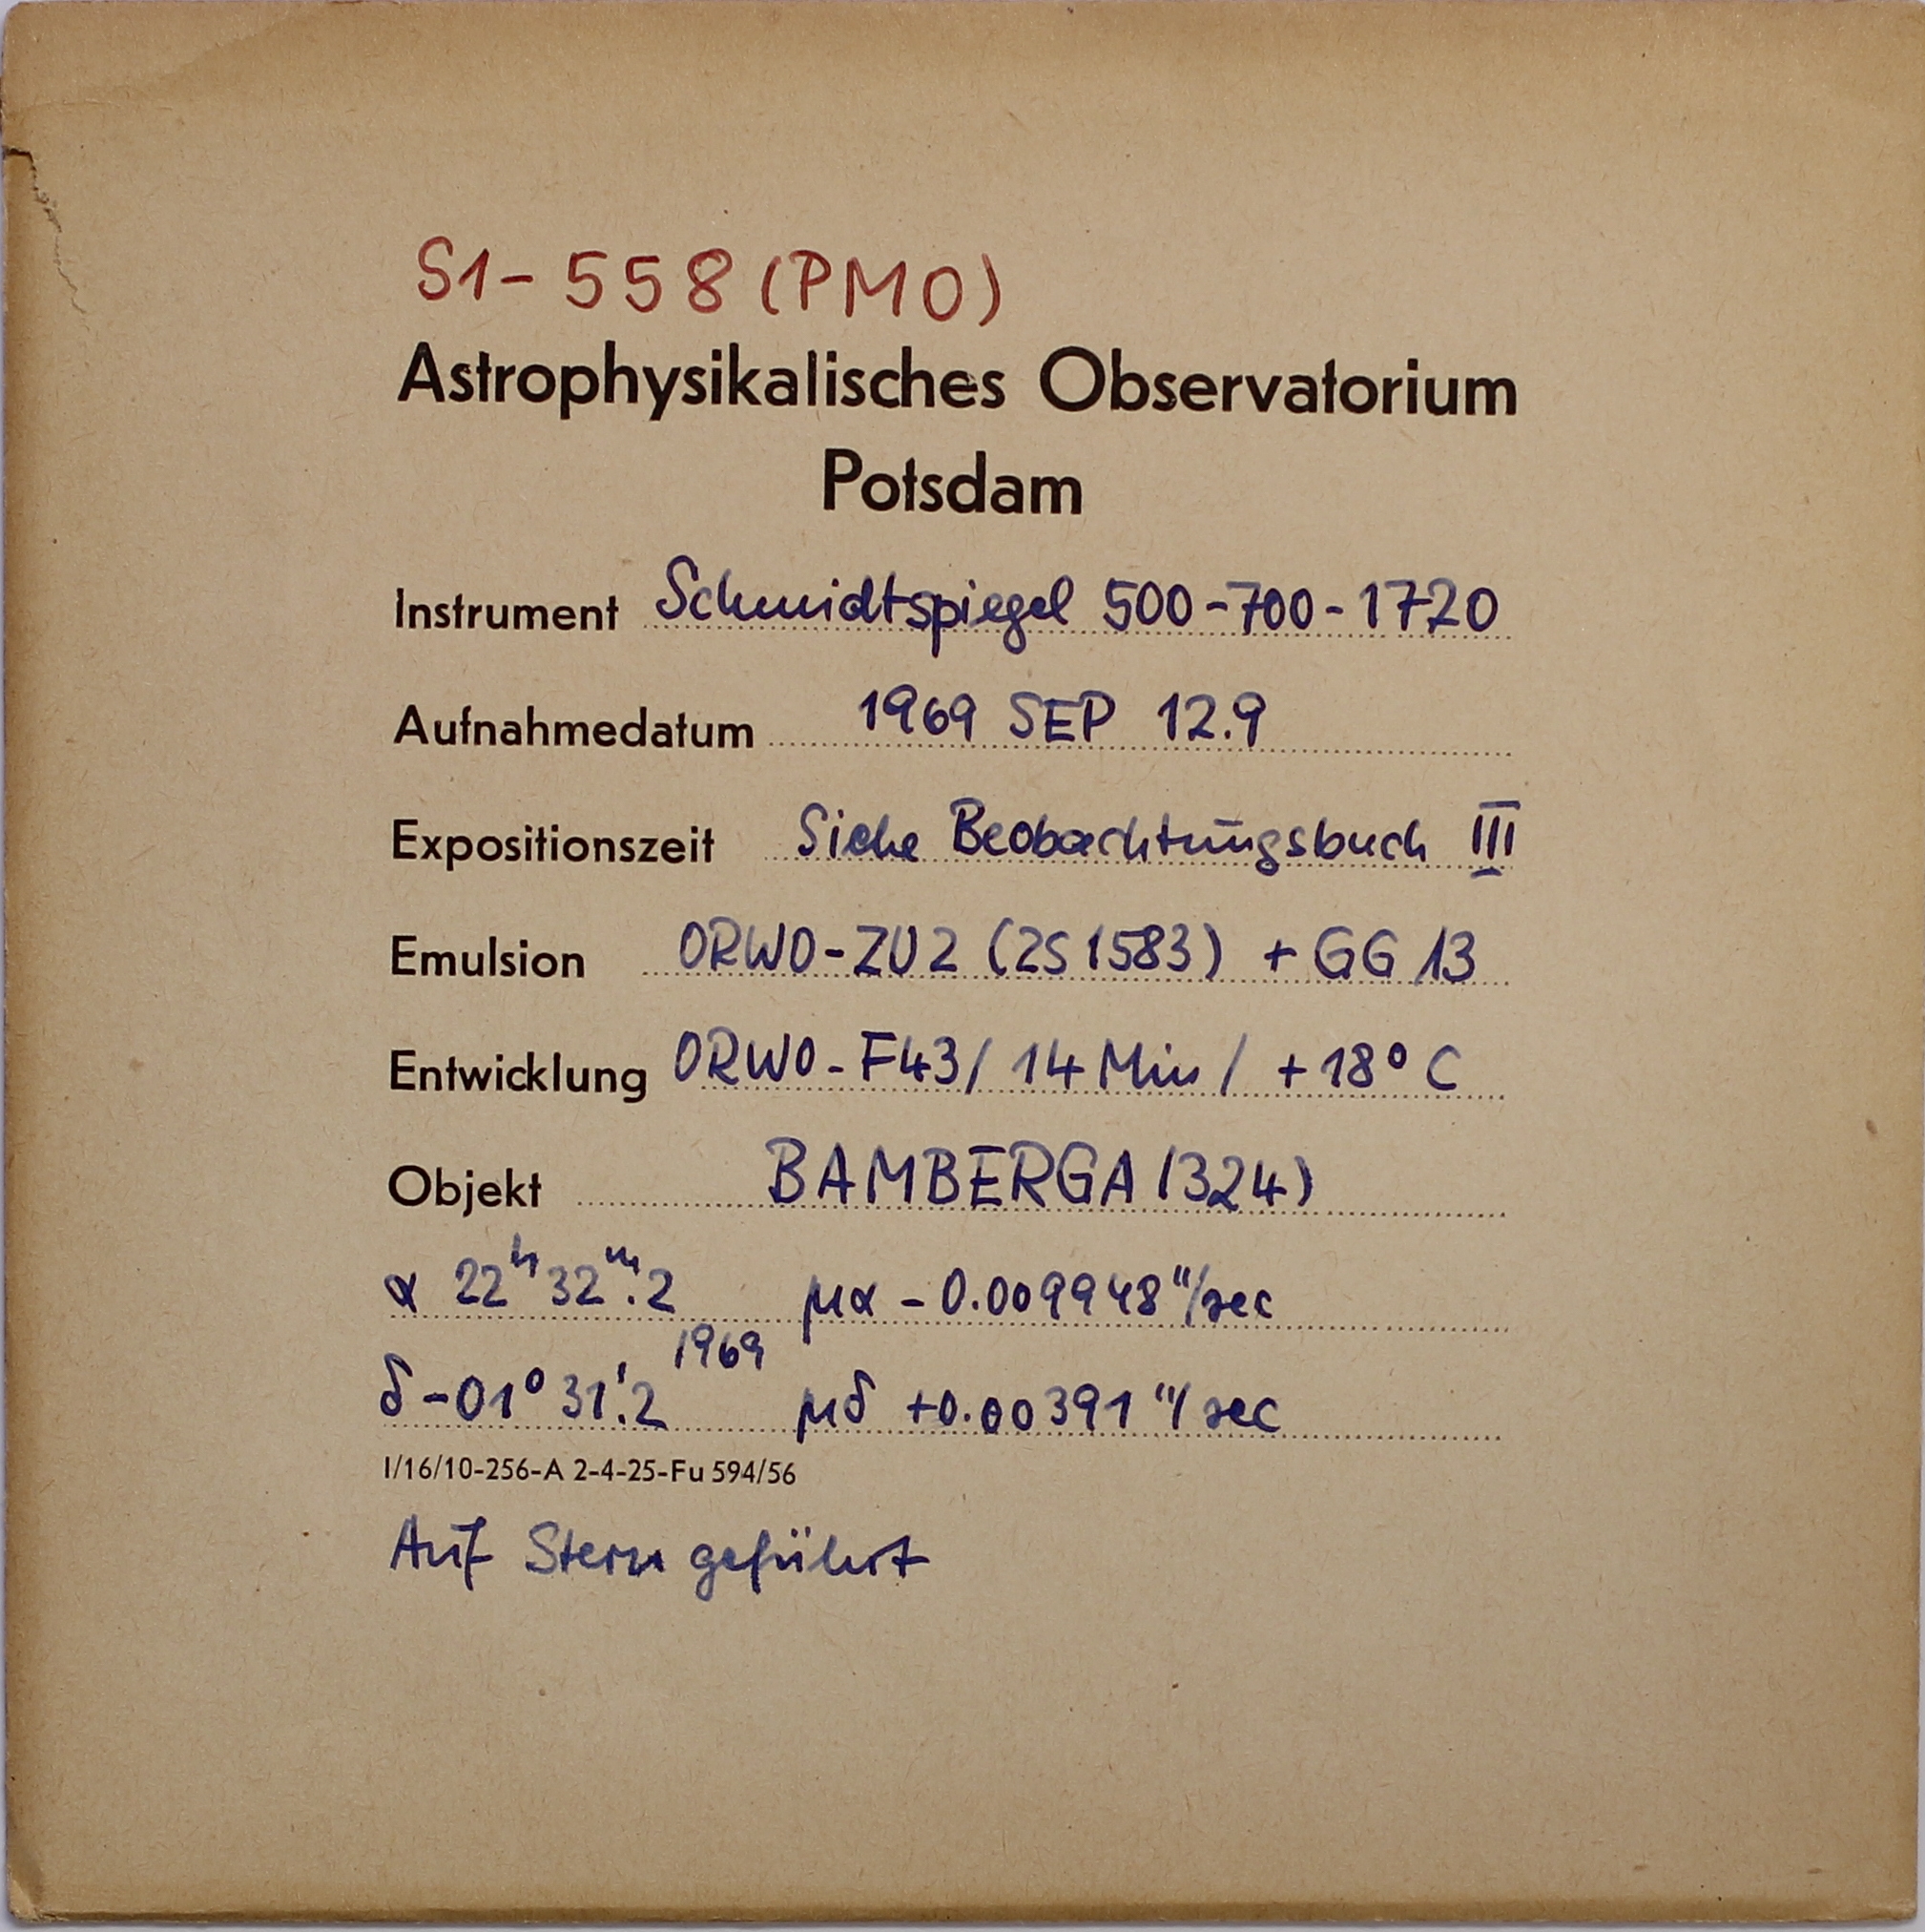 S1-558 (PMO)
Astrophysikalisches Observatorium
Potsdam
Instrument Schmidtspiegel 500-700-1720
Aufnahmedatum 1969 SEP 12.9
Expositionszeit Siehe Beobachtungsbuch III
Emulsion ORWO-ZU2 (2S1583) + GG 13
Entwicklung ORWO-F43/ 14 Min / +18° C
Objekt BAMBERGA (324)
α 22h 32m.2 μα -0.009948"/sec
1969
δ -01° 31'.2 μδ +0.00391"/sec
I/16/10-256-A 2-4-25-Fu 594/56
Auf Stern geführt